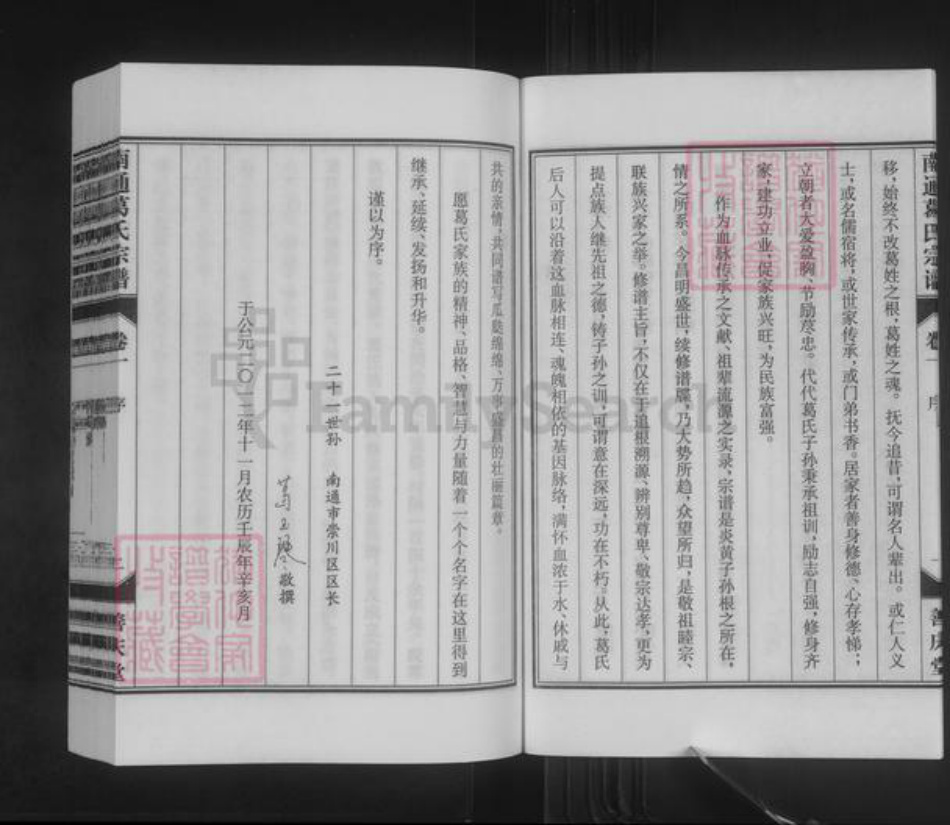 移,始终不改葛姓之根,葛姓之魂。抚今追昔,可谓名人辈出。或仁人义
士,或名儒宿将,或世家传承,或门弟书香。居家者善身修德、心存孝悌;
立朝者大爱盈胸、节励荩忠。代代葛氏子孙秉承祖训,励志自强,修身齐
家,建功立业,促家族兴旺,为民族富强。
作为血脉传承之文献、祖辈流源之实录,宗谱是炎黄子孙根之所在,
情之所系。今昌明盛世,续修谱牒,乃大势所趋,众望所归,是敬祖睦宗、
联族兴家之举。修谱主旨,不仅在于追根溯源、辨别尊卑、敬宗达孝,更为
提点族人继先祖之德,铸子孙之训,可谓意在深远,功在不朽。从此,葛氏
后人可以沿着这血脉相连、魂魄相依的基因脉络,满怀血浓于水、休戚与
共的亲情,共同谱写瓜瓞绵绵、万事盛昌的壮丽篇章。
愿葛氏家族的精神、品格、智慧与力量随着一个个名字在这里得到
继承、延续、发扬和升华。
谨以为序。
二十一世孙 南通市崇川区区长
葛玉 敬撰
于公元二〇一二年十一月农历壬辰年辛亥月
南通葛氏宗谱 卷一 序 善庆堂
FamilySearch